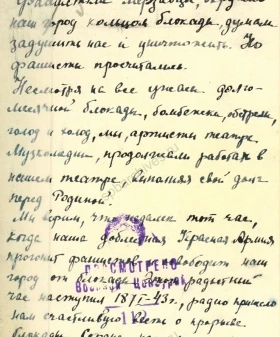 Фашисткие мерзавцы, окружив
наш город кольцом блокады, думали
задушить нас и уничтожить. Но
фашисты просчитались.
Несмотря на все ужасы долго-
месячной блокады, бомбежки, обстрелы,
голод и холод, мы, артисты театра
Музкомедии, продолжали работать в
нашем театре, выполняя свой долг
перед Родиной.
Мы верим, что недалек тот час,
когда наша доблестная Красная Армия
прогонит фашистов и освободит наш
город от блокады. Этот радостный
час наступил 18/I-43г., радио принесло
нам счастливую весть о прорыве
блокады.
ПРОСМОТРЕНО
Военной Цензурой